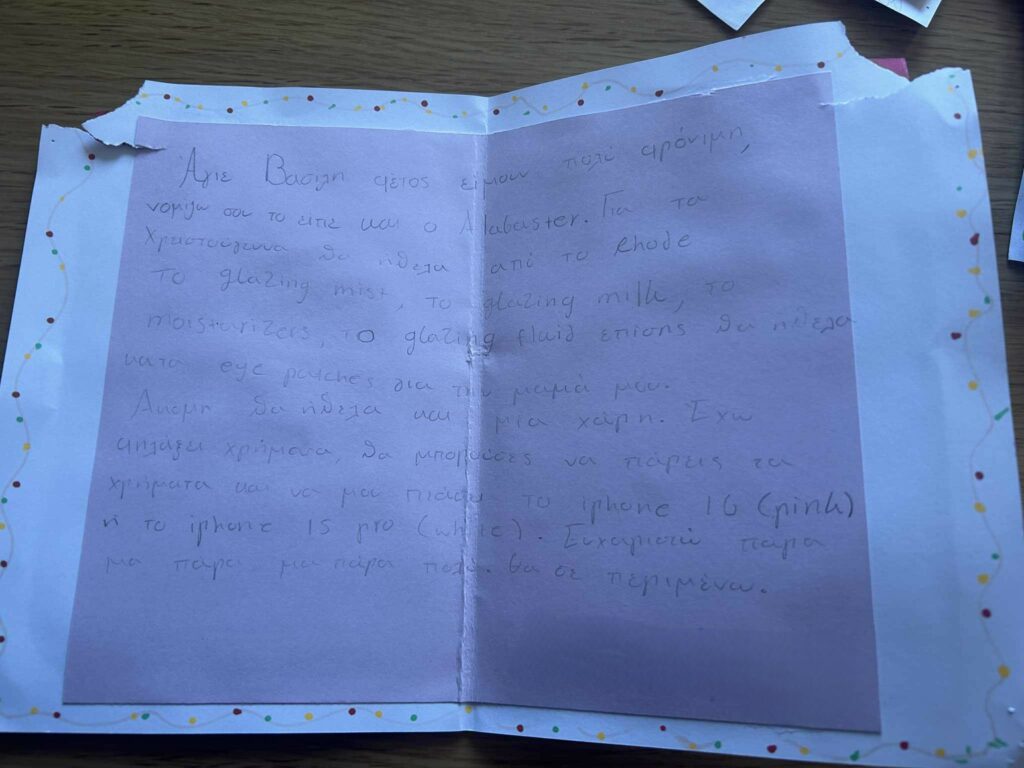 Άγιε Βασιλη φέτος είμουν πολύ φρόνιμη,
νομιζω σου το ειπε και ο Alabaster. Για τα
Χριστούγεννα θα ήθελα από το Rhode
το glazing mist, το glazing milk, το
moistarizers, το glazing fluid επίσης θα ήθελα
κατι eye patches για την μαμά μου.
Ακομη θα ήθελα και μια χάρη. Εχω
φιλάξει χρήματα, θα μπορούσες να πάρεις τα
χρήματα και να μου πιάσεις το iphone 16 (pink)
ή το iphone 15 pro (white). Ευχαριστώ παρα
μα πάρα μα πάρα πολύ. Θα σε περιμένω.